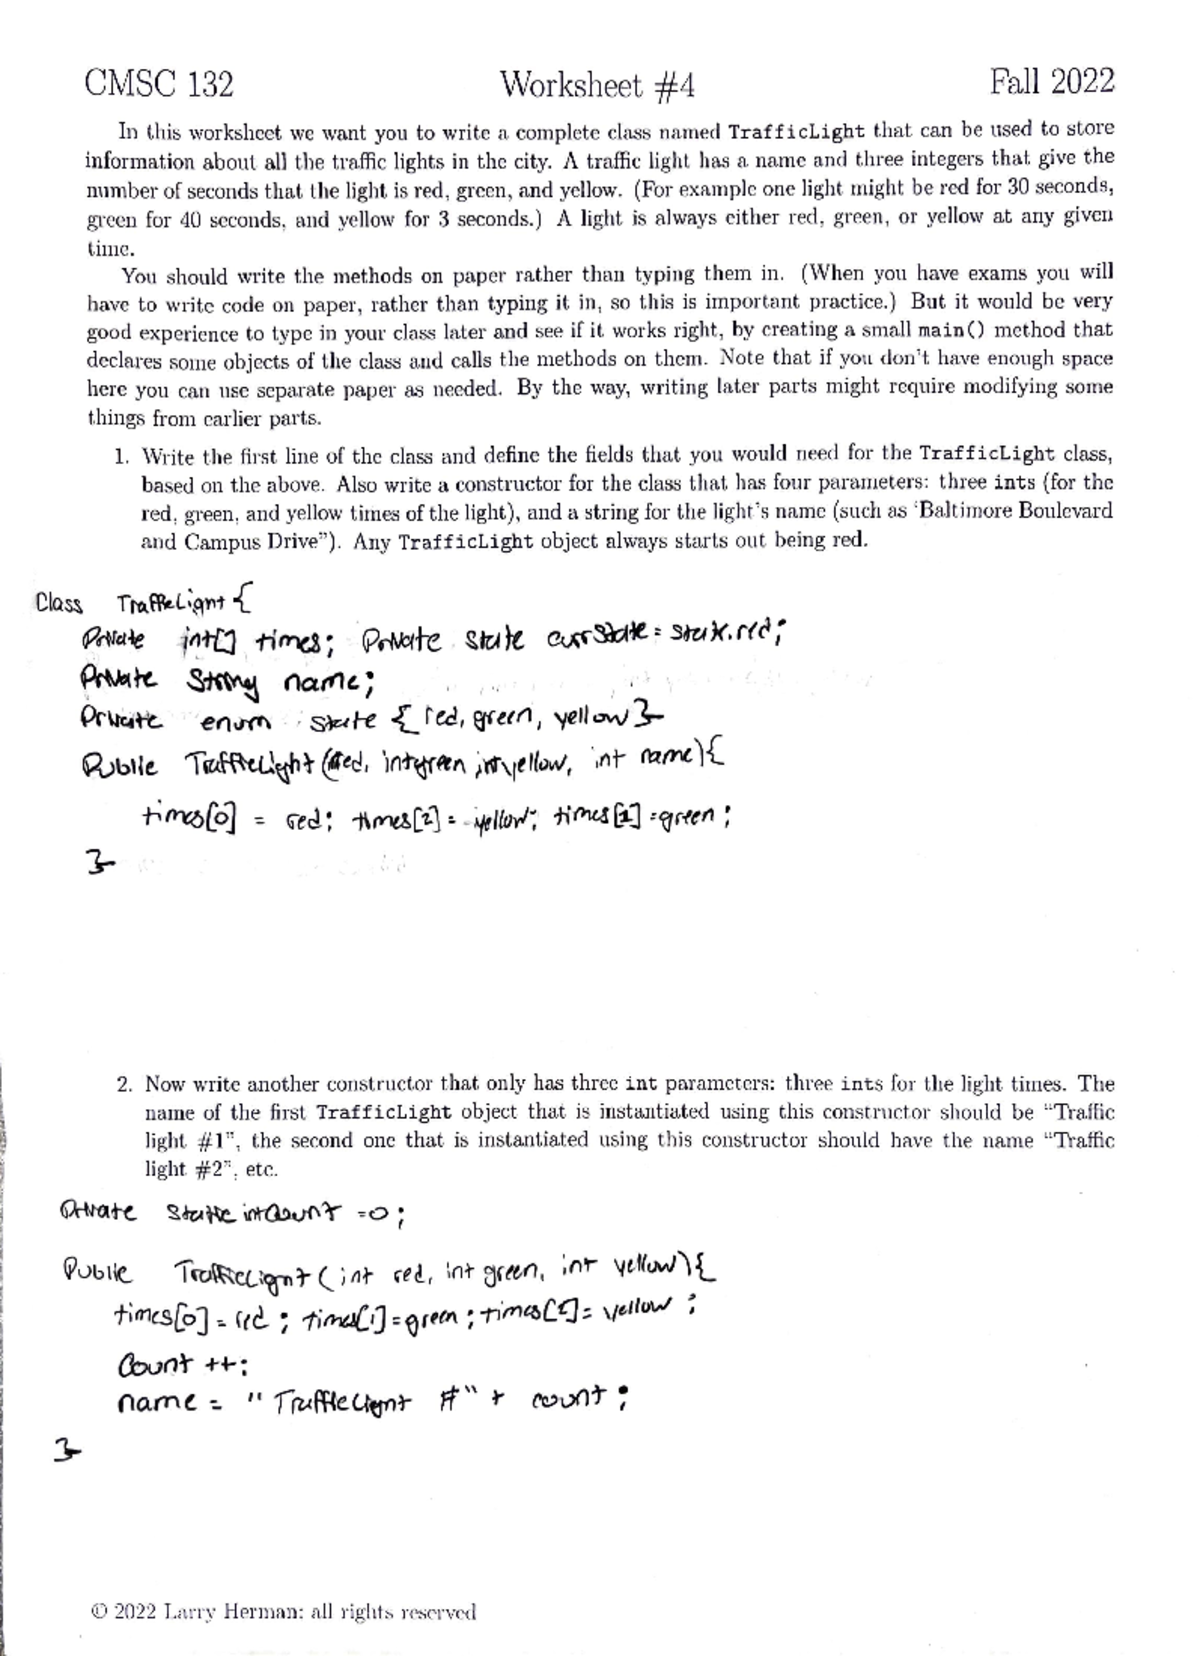 CMSC 132 Worksheet #4 Fall 2022
In this worksheet we want you to write a complete class named TrafficLight that can be used to store
information about all the traffic lights in the city. A traffic light has a name and three integers that give the
number of seconds that the light is red, green, and yellow. (For example one light might be red for 30 seconds,
green for 40 seconds, and yellow for 3 seconds.) A light is always either red, green, or yellow at any given
time.
You should write the methods on paper rather than typing them in. (When you have exams you will
have to write code on paper, rather than typing it in, so this is important practice.) But it would be very
good experience to type in your class later and see if it works right, by creating a small main() method that
declares some objects of the class and calls the methods on them. Note that if you don't have enough space
here you can use separate paper as needed. By the way, writing later parts might require modifying some
things from earlier parts.
1. Write the first line of the class and define the fields that you would need for the TrafficLight class,
based on the above. Also write a constructor for the class that has four parameters: three ints (for the
red, green, and yellow times of the light), and a string for the light's name (such as 'Baltimore Boulevard
and Campus Drive"). Any TrafficLight object always starts out being red.
Class TrafficLight {
Private int[] times; Private state currState = state.red;
Private String name;
Private enum state { red, green, yellow }
Public TrafficLight (red, int green, int yellow, int name) {
times[0] = red; times[2] = yellow; times[1] = green;
}
2. Now write another constructor that only has three int parameters: three ints for the light times. The
name of the first TrafficLight object that is instantiated using this constructor should be "Traffic
light #1", the second one that is instantiated using this constructor should have the name "Traffic
light #2", etc.
Private Static int Count = 0;
Public TrafficLight (int red, int green, int yellow) {
times[0] = red; times[1] = green; times[2] = yellow;
Count ++;
name = "TrafficLight #" + count;
}
© 2022 Larry Herman: all rights reserved